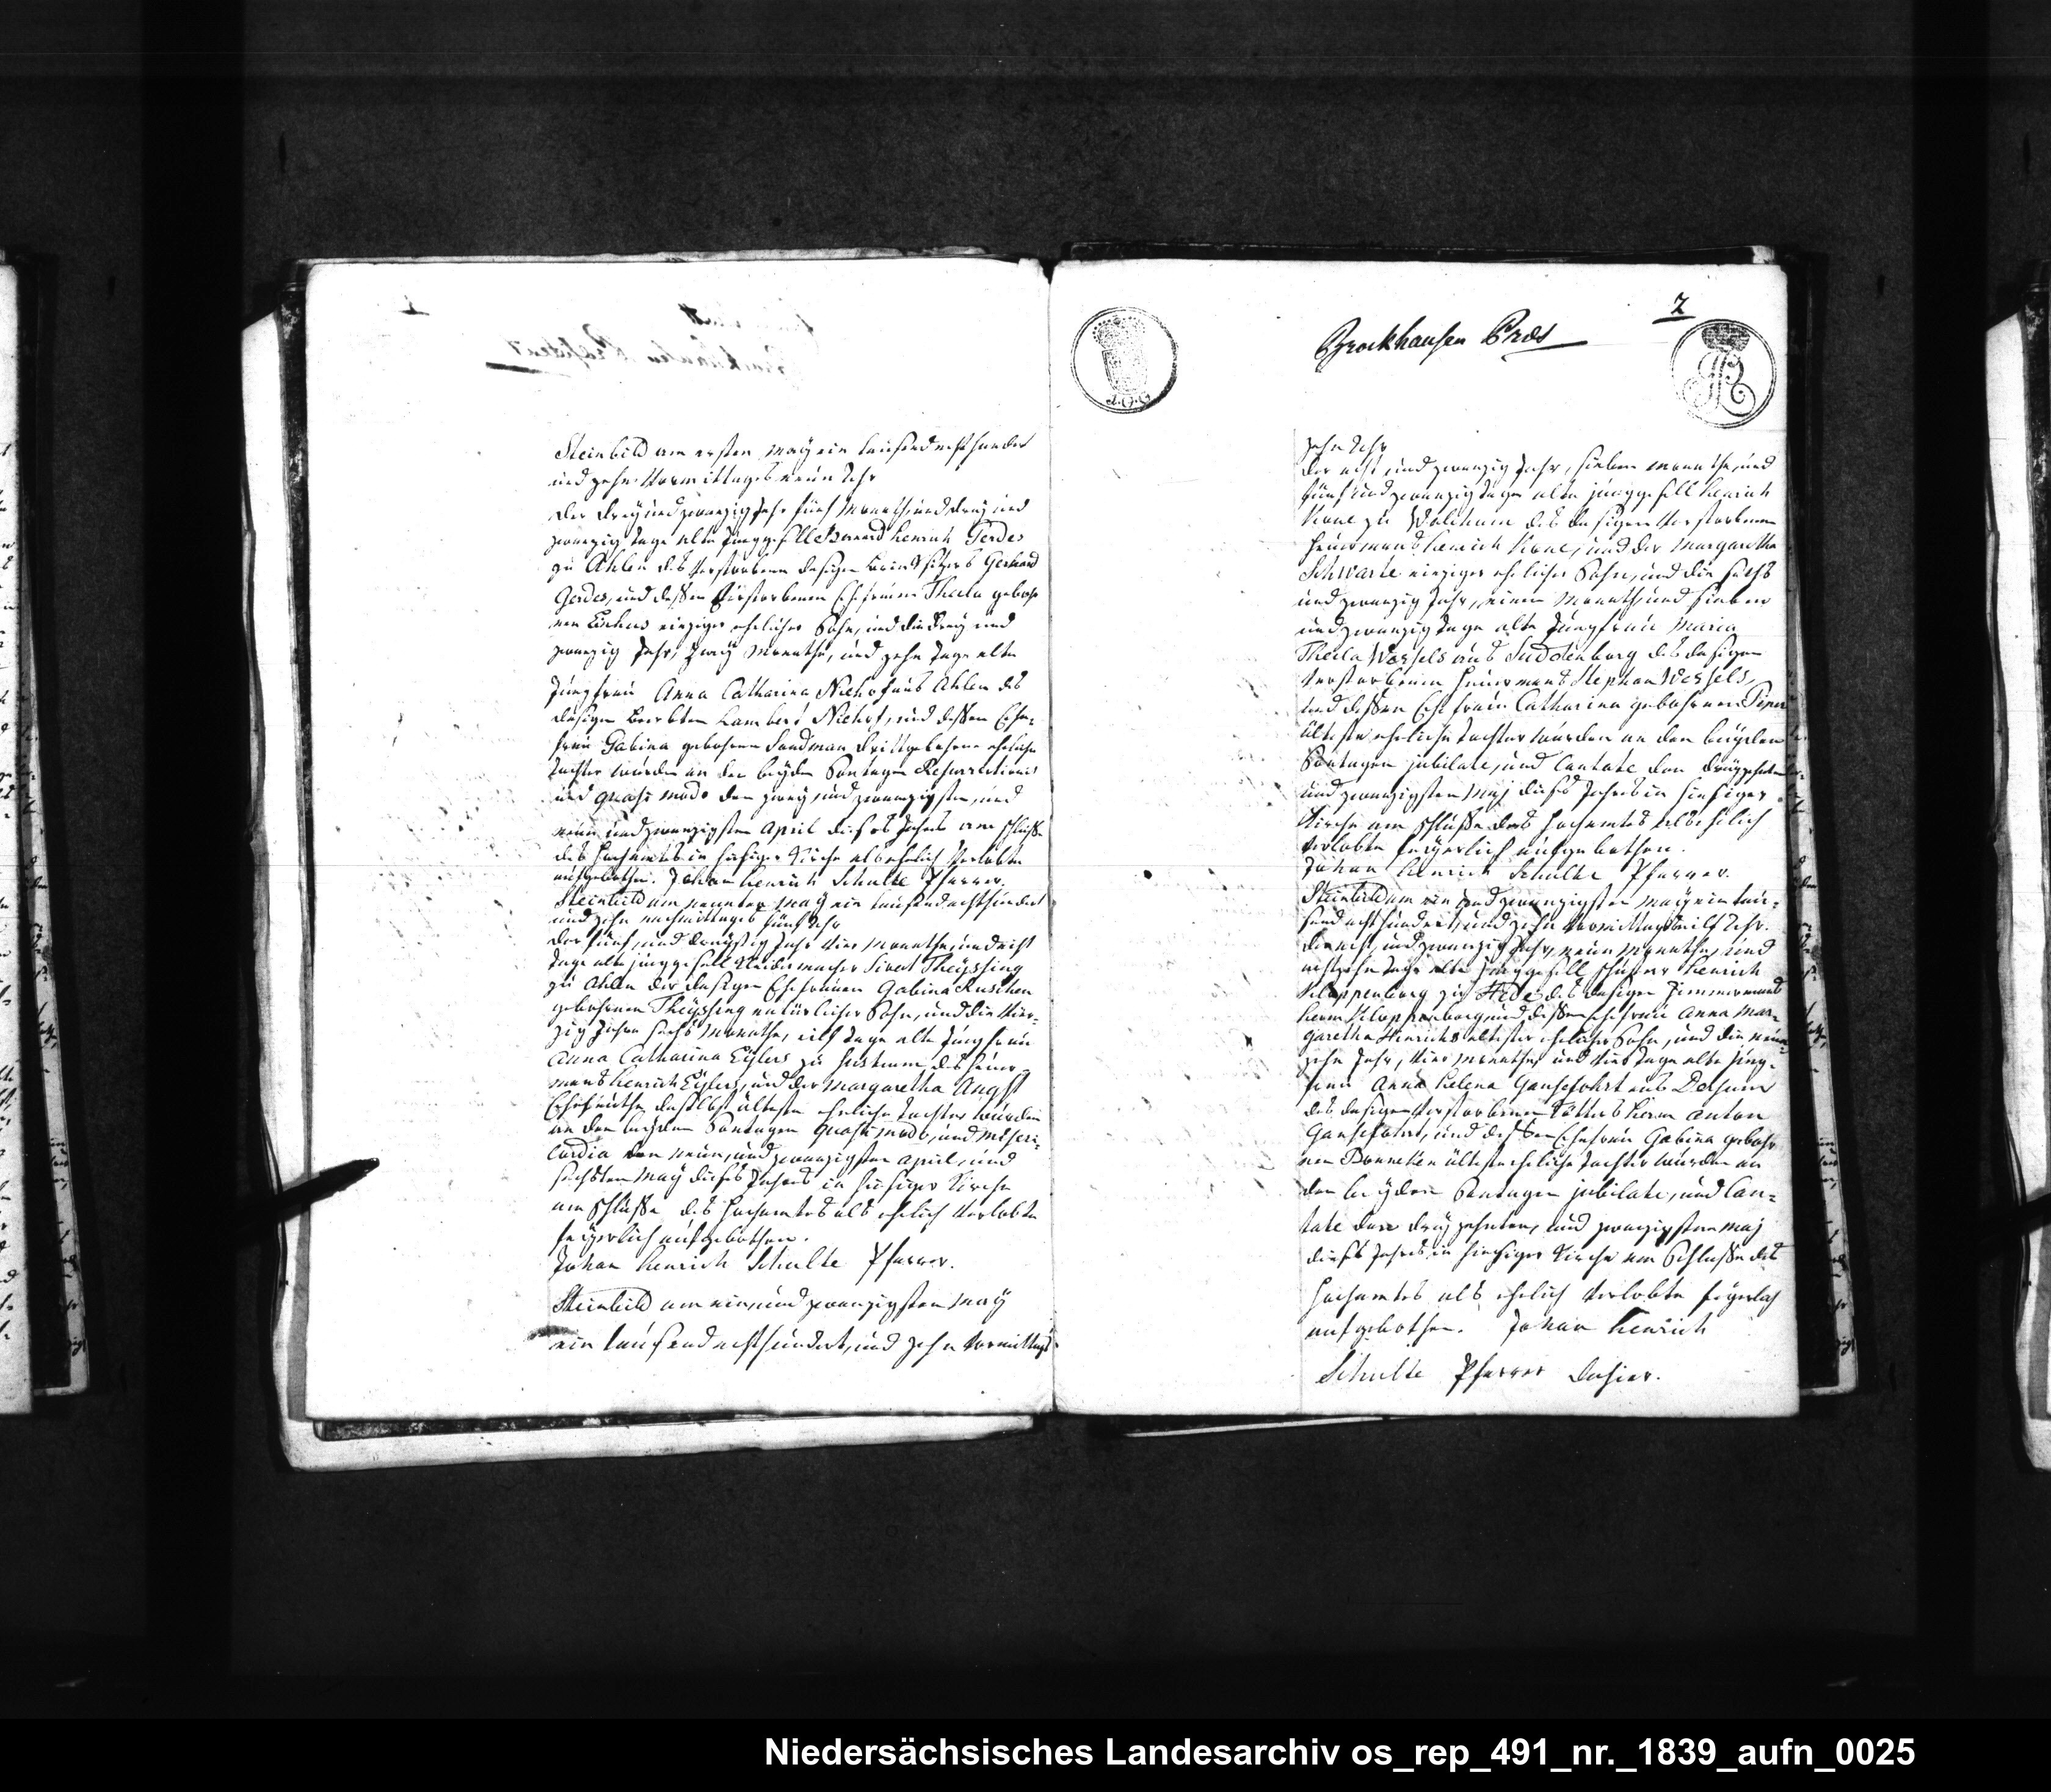 Steinbild am ersten may ein tausend achthundert
und zehn Vormittages neun Uhr
der dreÿ und zwanzig Jahr fünf Monath, und dreÿ und
zwanzig tage alte Junggesell Bernard Henrich Gerdes
zu Ahlen des verstorbenen dasigen Gerhard
Gerdes, und deßen verstorbenen Ehefrauen Theila gebohr
nen einziger ehelicher Sohn, und die dreÿ und
zwanzig Jahr, zweÿ Monathe, und zehn tage alte
Jungfrau Anna Catharina Niehof aus Ahlen des
dasigen Lambert Niehof, und deßen Ehe-
frau Gabina gebohrne Sandman eheliche
tochter wurden an den beÿden Sontagen Resurrectionis
und quasi modo den zweÿ und zwanzigsten, und
neun und zwanzigsten April dieses Jahres am schluße
des hochamtes in hiesiger Kirche als ehelich Verlobte
aufgebothen. Johan Henrich Schulte Pfarrer.
Steinbild am neunten maÿ ein tausend achthundert
und zehn nachmittages fünf Uhr
der fünf, und dreÿßig Jahr vier Monathe, und acht
tage alte junggesell Kleidermacher Sivert Theÿssing
zu Ahlen der dasigen Ehefrauen Gabina Ruschen
gebohrnen Theÿssing natürlicher Sohn, und die vier-
zig Jahre sechs Monathe, eilf tage alte Jungfrau
Anna Catharina Eÿlers zu des heuer-
mans Henrich Eÿlers, und der Margaretha Angst
Eheleuthe daselbst älteste eheliche tochter wurden
an den beÿden Sontagen quasi modo, und miseri-
cordia den neun, und zwanzigsten april, und
sechsten maÿ dieses Jahres in hiesiger Kirche
am schluße des hochamtes als ehelich Verlobte
feÿerlich aufgebothen.
Johan Henrich Schulte Pfarrer.
Steinbild am ein, und zwanzigsten maÿ
ein tausend achthundert, und zehn Vormittags
2
Brockhausen Præs
zehn Uhr
der acht und zwanzig Jahr, sieben monathe, und
fünf und zwanzig tage alte junggesell Henrich
zu Walchum des dasigen verstorbenen
heuermans Henrich und der Margaretha
Schwarte einziger ehelicher Sohn, und die sechs
und zwanzig Jahr, einen Monath, und sieben
und zwanzig tage alte Jungfrau Maria
Theila Wessels aus Suddenborg des dasigen
verstorbenen heuermans Stephan Wessels,
und deßen Ehefrau Catharina gebohrnen
älteste eheliche tochter wurden an den beÿden
Sontagen jubilate, und Cantate den dreÿzehnten
und zwanzigsten Maj dieses Jahres in hiesiger
Kirche am schluße des hochamtes als ehelich
Verlobte feÿerlich aufgebothen.
Johan Henrich Schulte Pfarrer.
Steinbild am ein und zwanzigsten Maÿ ein tau-
send achthundert, und zehn Vormittags eilf Uhr.
der acht, und zwanzig Jahr, neun Monathe, und
achtzehn tage alte Junggesell Henrich
Kloppenborg zu Hede des dasigen Zimmermans
Herm Kloppenborg und deßen Ehefrau Anna Mar-
garetha Hinrichs ältester ehelicher Sohn, und die neun-
zehn Jahr, vier Monathe, und vier tage alte Jung-
frau Anna Helena Gansefohrt aus Dersum
des dasigen verstorbenen Herm Anton
Gansefohrt, und deßen Ehefrau Gabina gebohr
nen älteste eheliche tochter wurden an
den beÿden Sontagen jubilate, und Can-
tate den dreÿzehnten, und zwanzigsten maj
dieses Jahres in hiesiger Kirche am Schluße des
hochamtes als ehelich Verlobte feÿerlich
aufgebothen. Johan Henrich
Schulte Pfarrer dahier.
Niedersächsisches Landesarchiv os_rep_491_nr._1839_aufn_0025